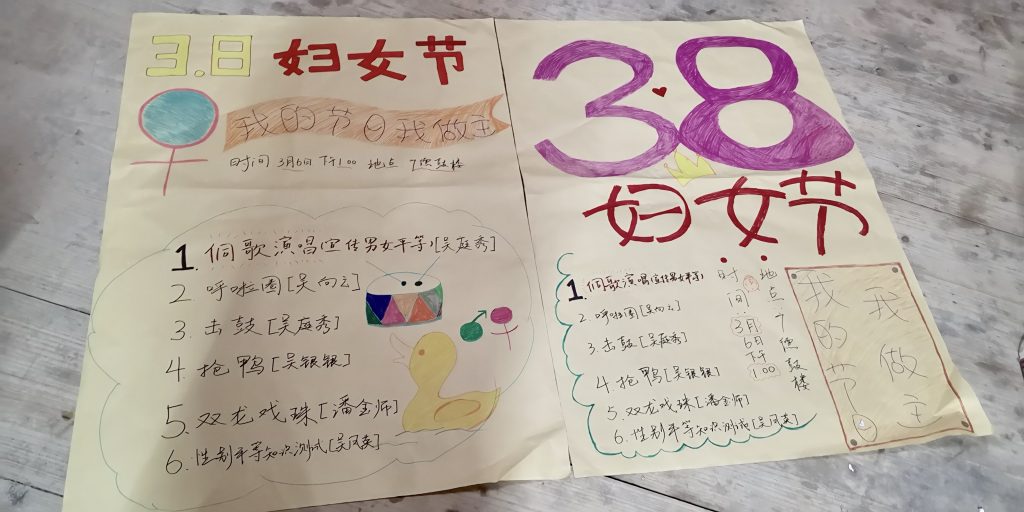 3.8 妇女节
我的节日我做主
时间 3月6日 下午1:00 地点 7德鼓楼
1. 侗歌演唱宣传男女平等,[吴庭秀]
2 呼啦圈[吴向云]
3. 击鼓[吴庭秀]
4 抢鸭[吴银银]
5. 双龙戏珠[潘金师]
6. 性别平等知识测试[吴凤英]
3.8
妇女节
1. 侗歌演唱宣传男女平等,
2. 呼啦圈[吴向云]
3. 击鼓[吴庭秀]
4 抢鸭[吴银银]
5. 双龙戏珠[潘金师]
6. 性别平等知识测试[吴凤英]
时间:3月6日下午1:00
地点7德鼓楼
我的节日
我做主